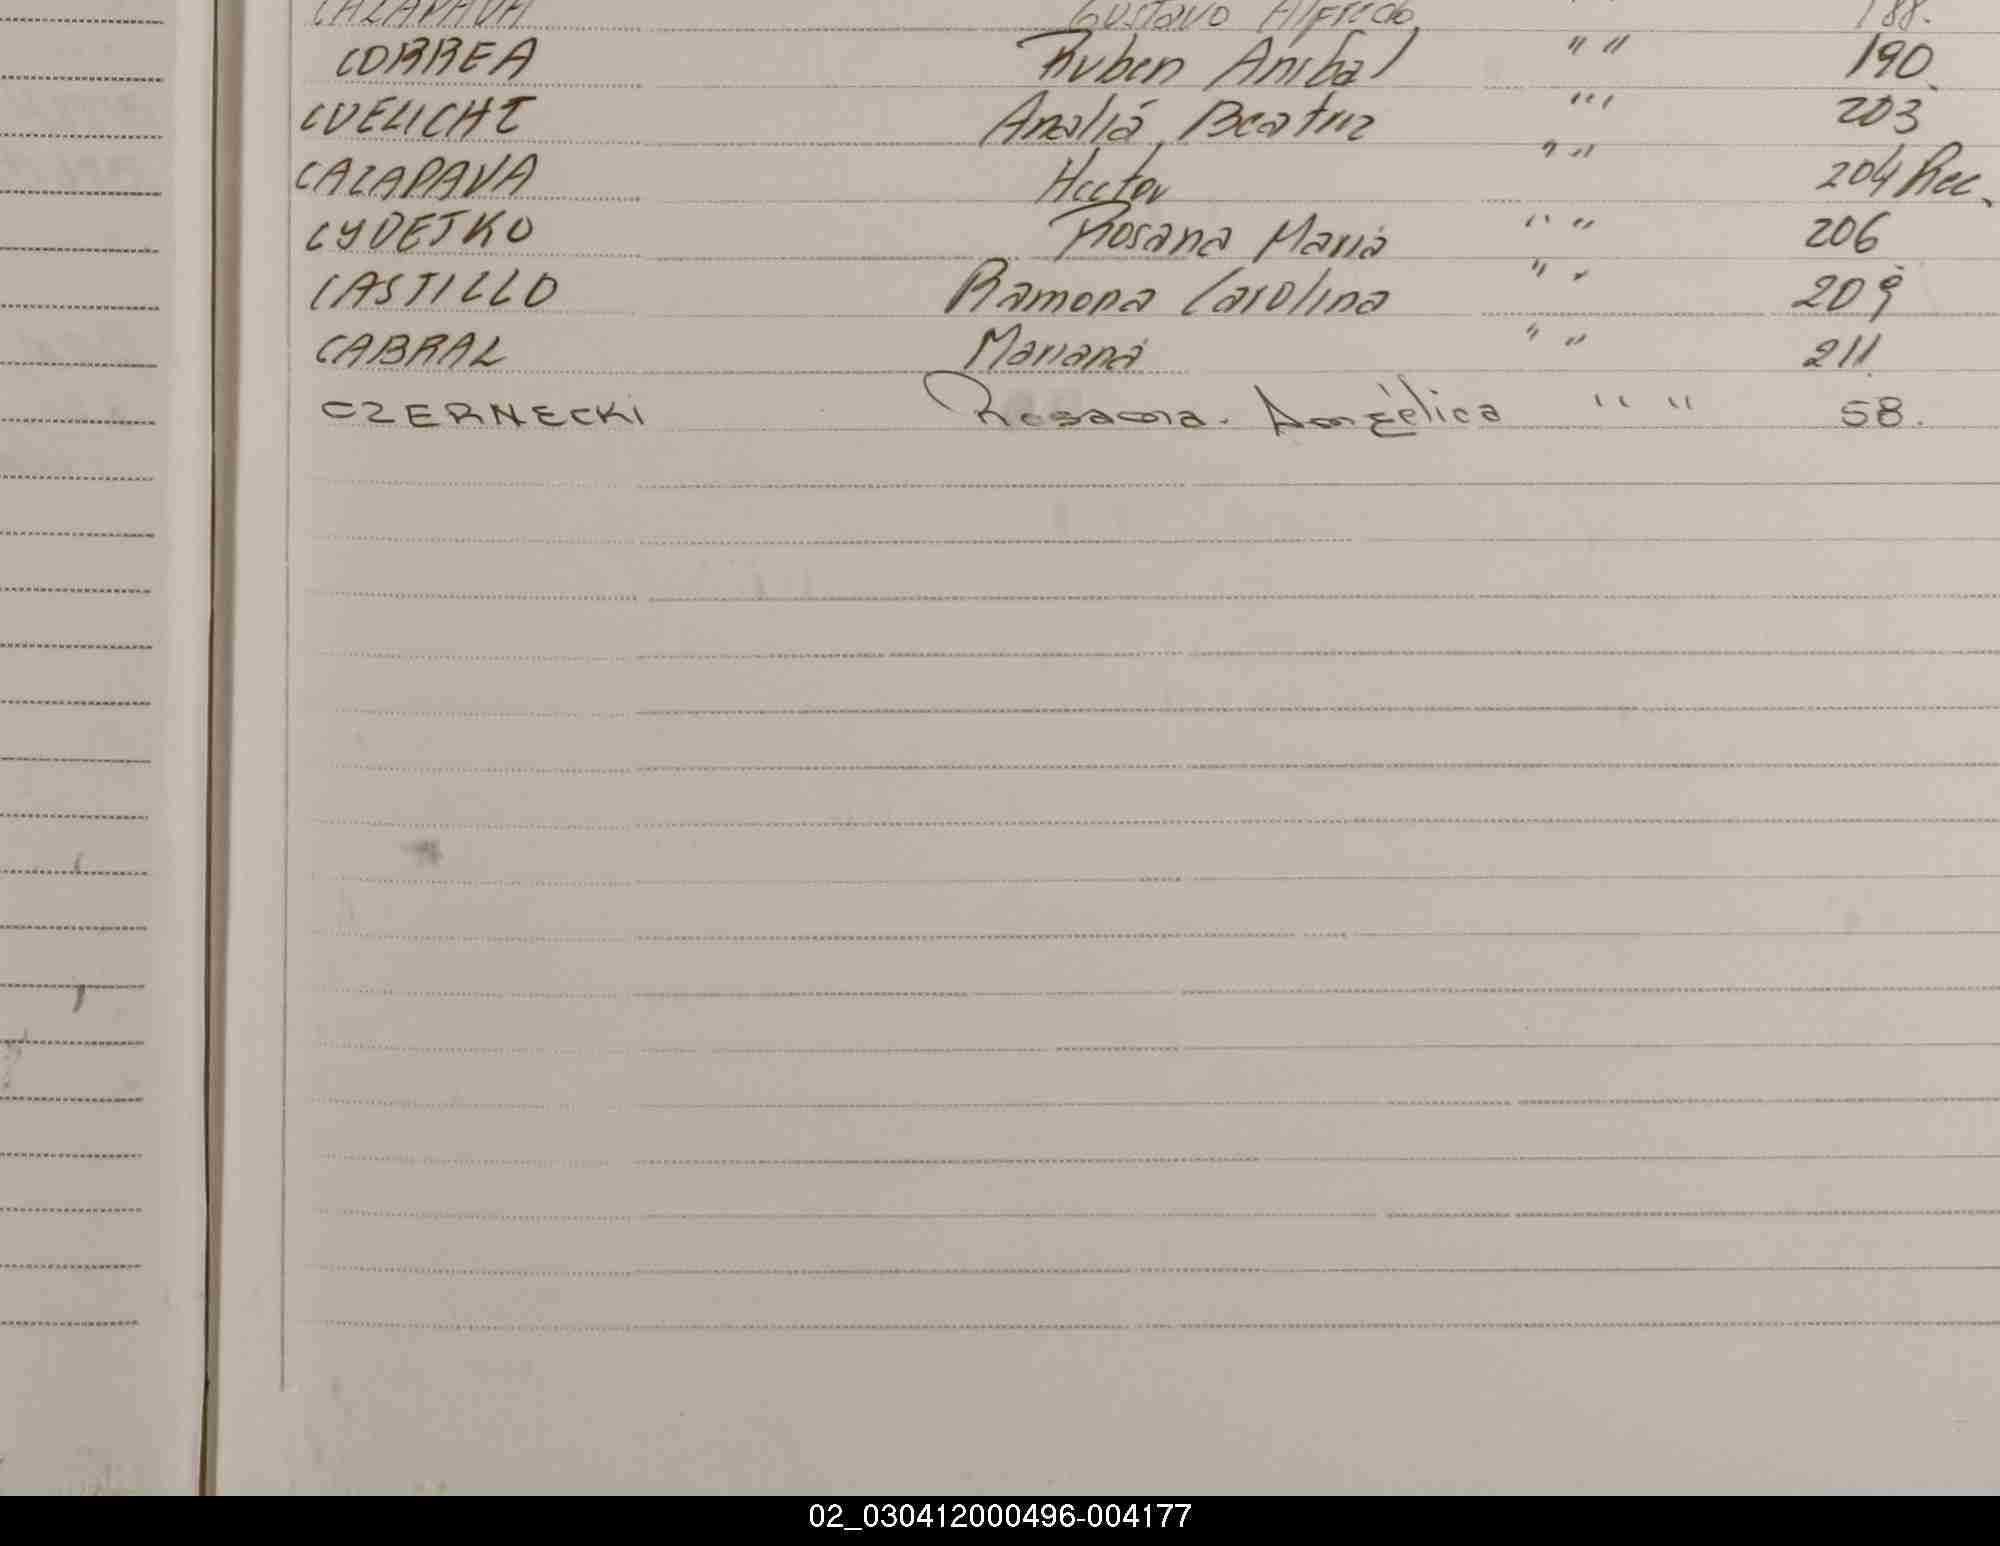 CAZAPAVA Gustavo Alfredo 188.
CORREA Ruben Anibal " " 190.
CUELICHT Analia Beatriz " " 203
CAZAPAVA Hector " " 204 Rec.
CYDEJKO Rosana Maria " " 206
CASTILLO Ramona Carolina " " 209
CABRAL Mariana " " 211
CZERNECKI Rosana Angélica " " 58.
02_030412000496-004177